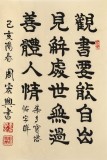 觀書要能自出
見解處世無過
善體人情
己亥陽春 周宏興書